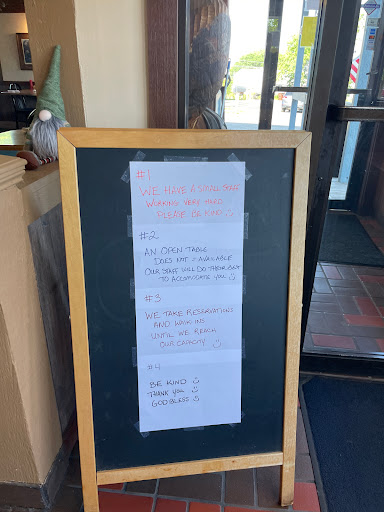 #1
WE HAVE A SMALL STAFF
WORKING VERY HARD
PLEASE BE KIND ☺
#2
AN OPEN TABLE
DOES NOT = AVAILABLE
OUR STAFF WILL DO THEIR BEST
TO ACCOMODATE YOU ☺
#3
WE TAKE RESERVATIONS
AND WALK INS
UNTIL WE REACH
OUR CAPACITY ☺
#4
BE KIND ☺
THANK YOU ☺
GOD BLESS ☺